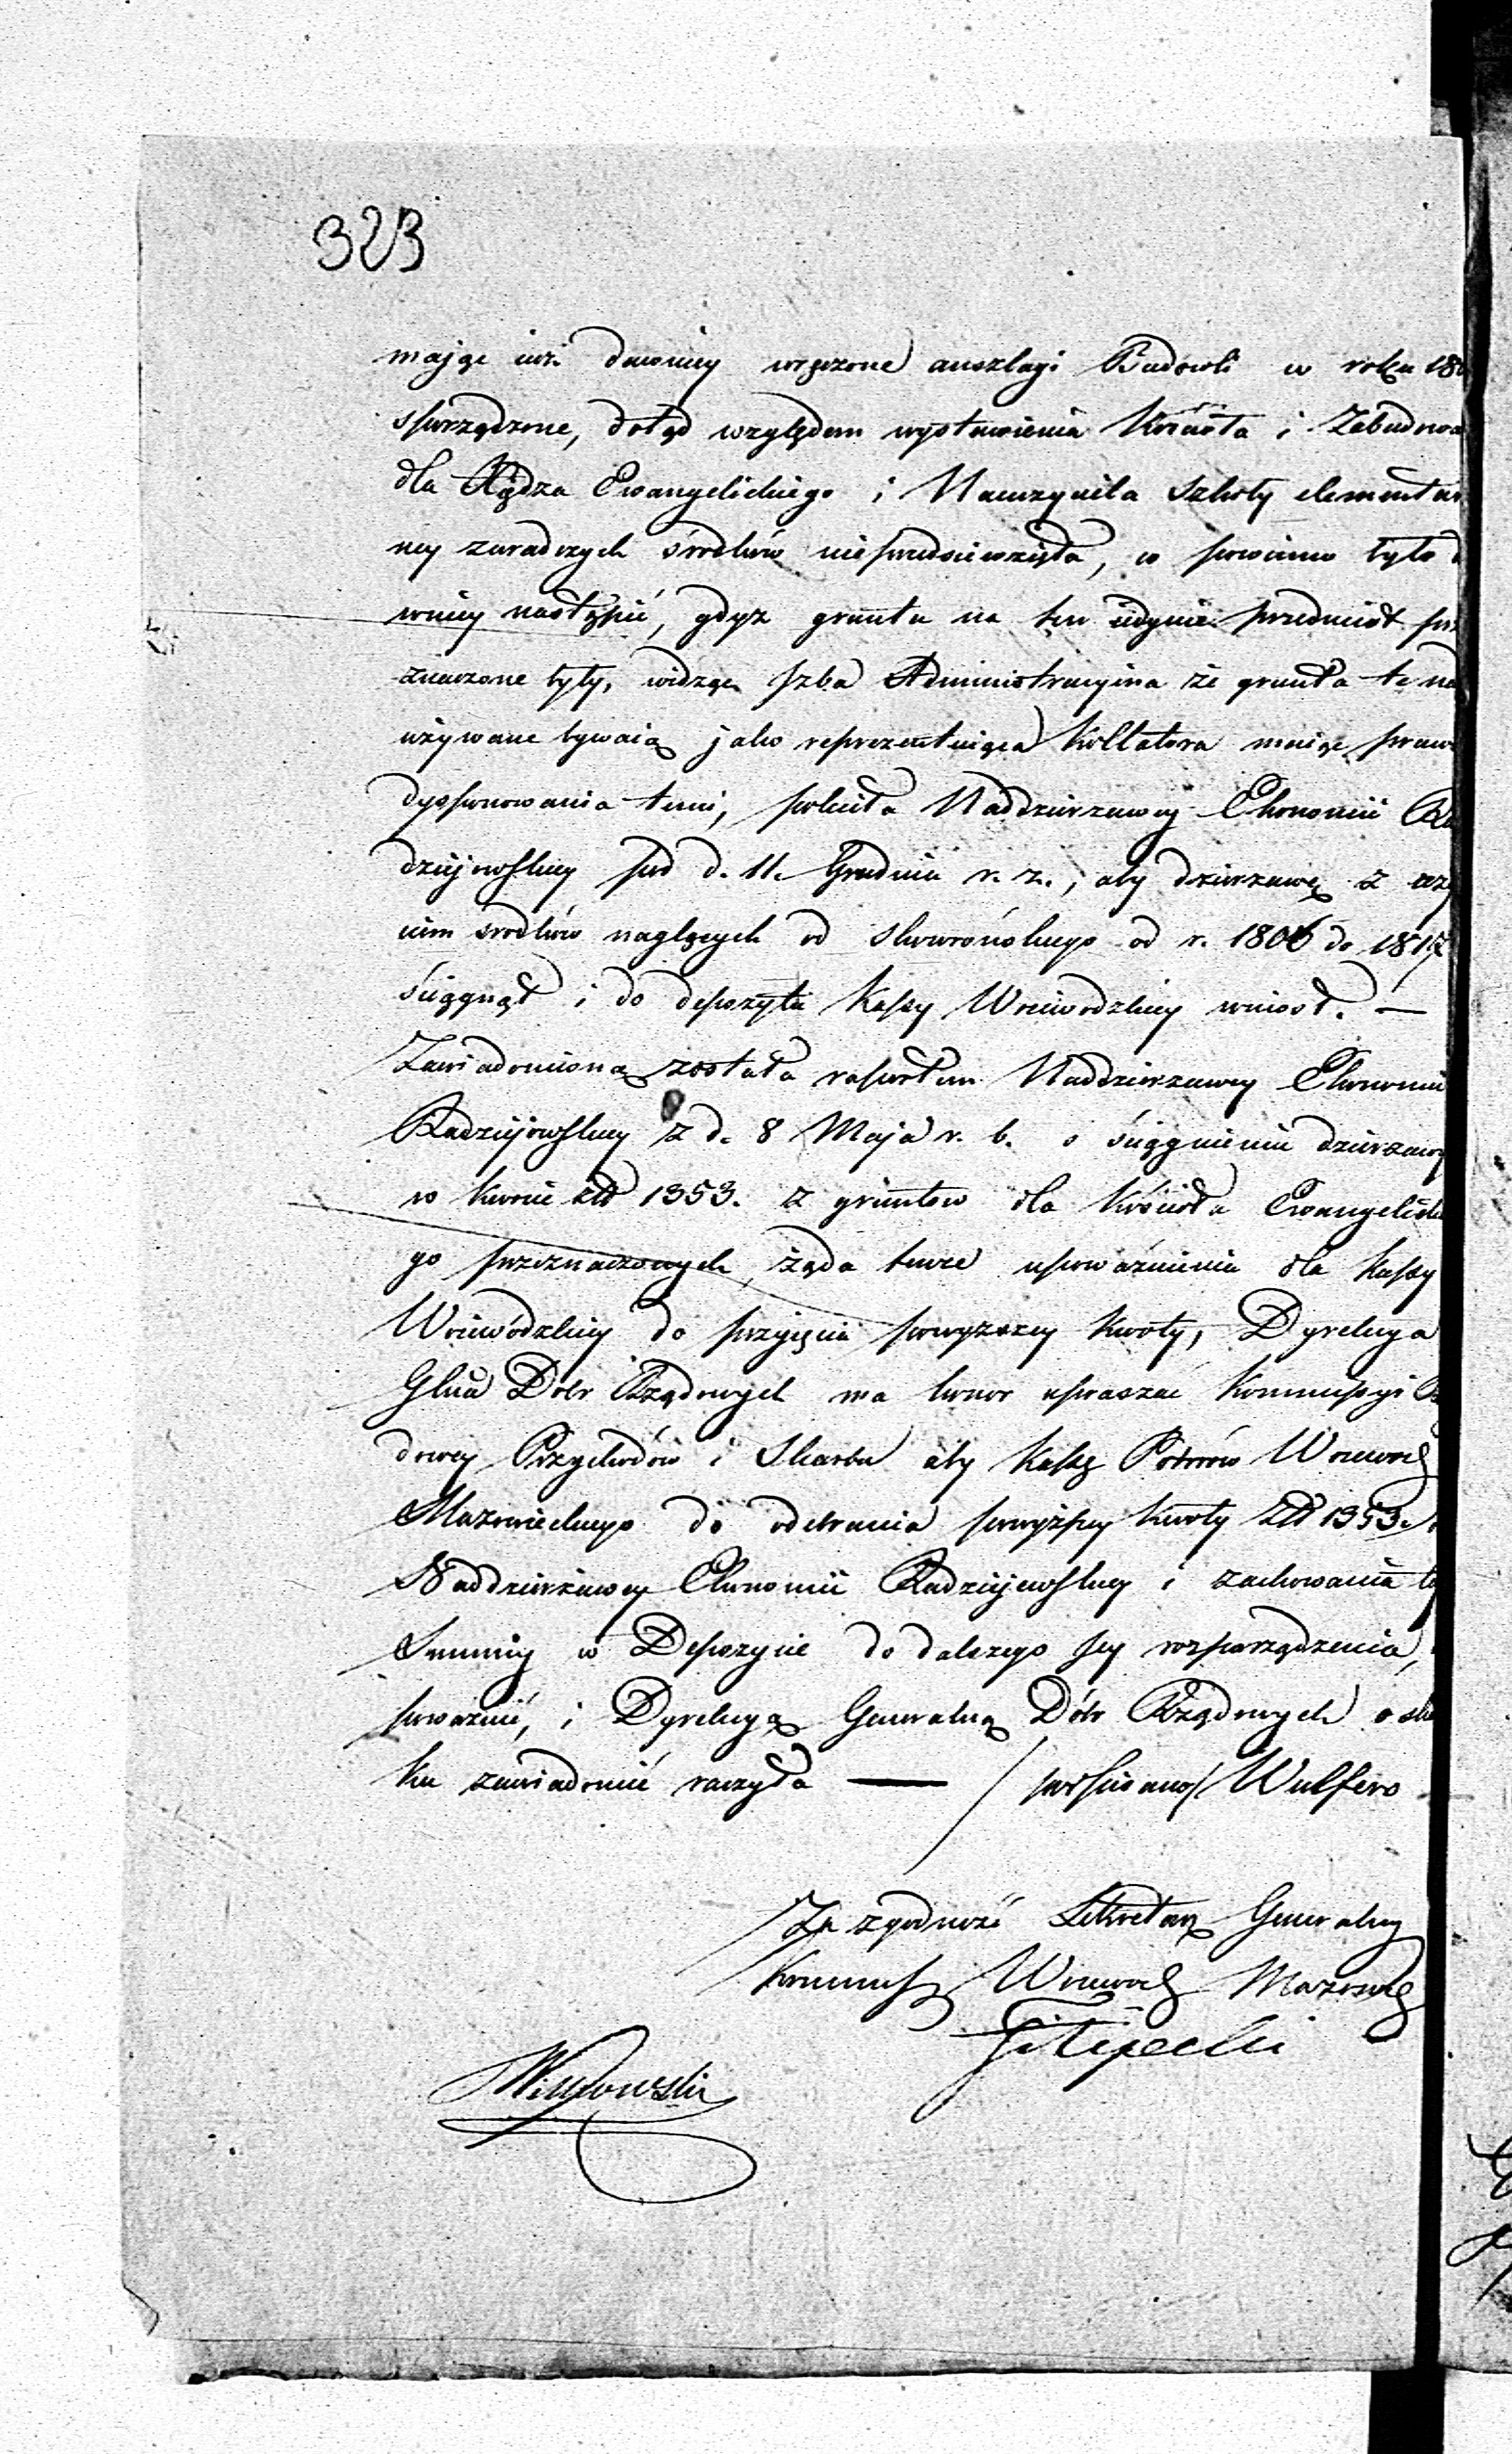 323
mając iuż dawniey wręczone anszlagi Budowli w roku 18
sporządzone, dotąd względem wystawienia Kościoła i Zabudowa
dla Xiędza Ewangelickiego i Nauczyciela szkoły elementar
ney zaradczych środków nieprzedsiewzięła, co powinno było d
wniey nastąpić, gdyż grunta na ten iedynie przedmiot prze
znaczone były, widząc Izba Administracyina że grunta te na
używane bywaią jako reprezentuiąca Kollatora maiąc prawo
dysponowania temi, poleciła Naddzierzawcy Ekonomii Ra
dziejowskiey pod d. 11. Grudnia r. z., aby dzierzawę z uży
ciem srodków naglących od Skowrońskiego od r. 1806 do 1817
ściągnął i do depozytu Kassy Woiewodzkiey wniosł. —
Zawiadomiona została raportem Naddzierzawcy Ekonomii
Radziejowskiey z d. 8 Maja r. b. o ściągnieniu dzierzawy
w kwocie złł 1353. z gruntow dla Kościoła Ewangelickie
go przeznaczonych, żąda teraz upoważnienia dla Kassy
Woiewódzkiey do przyięcia powyzszey kwoty, Dyrekcya
Glna Dóbr Rządowych ma honor upraszać Kommissyi Rz
dowey Przychodów i Skarbu aby Kassę Poborów Woiewodz
Mazowieckiego do odebrania powyższey kwoty Złł 1353. o
Naddzierżawcy Ekonomii Radziejewskiey i zachowania te
Summy w Depozycie do dalszego jey rozporządzenia,
poważnić, i Dyrekcyą Generalną Dóbr Rządowych o sku
tku zawiadomić raczyła — / podpisano / Wulfers
Za zgodność Sekretarz Generalny
Kommiss Woiewodz Mazow
Filipecki